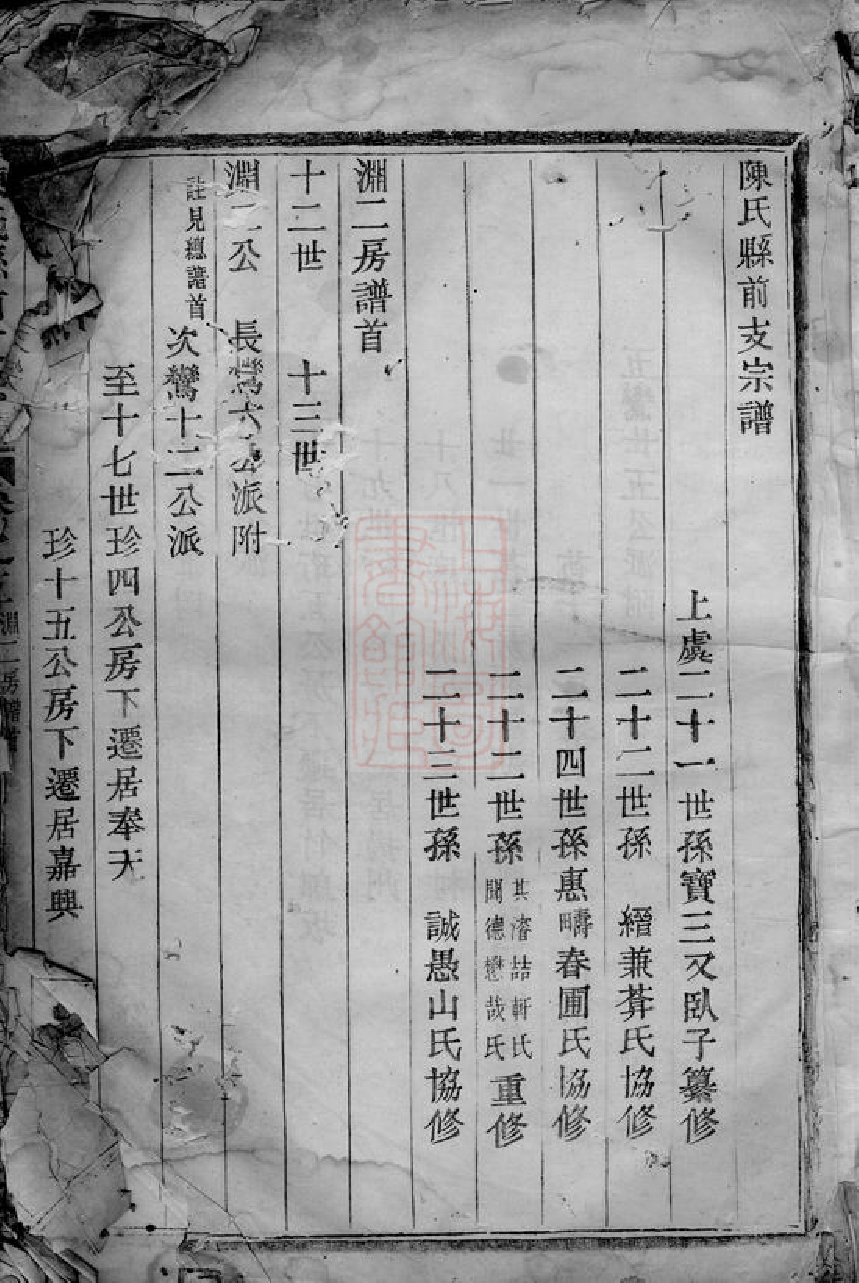 陳氏縣前支宗譜
上虞二十一世孫寶三又臥子纂修
二十二世孫 縉兼莽氏協修
二十四世孫惠疇春圃氏協修
二十二世孫其濬喆軒氏聞德懋哉氏重修
二十三世孫 誠愚山氏協修
淵二房譜首
十二世 十三世
淵二公 長鸞六公派附
註見總譜首 次鸞十二公派
至十七世珍四公房下遷居奉天
珍十五公房下遷居嘉興
淵二房譜首